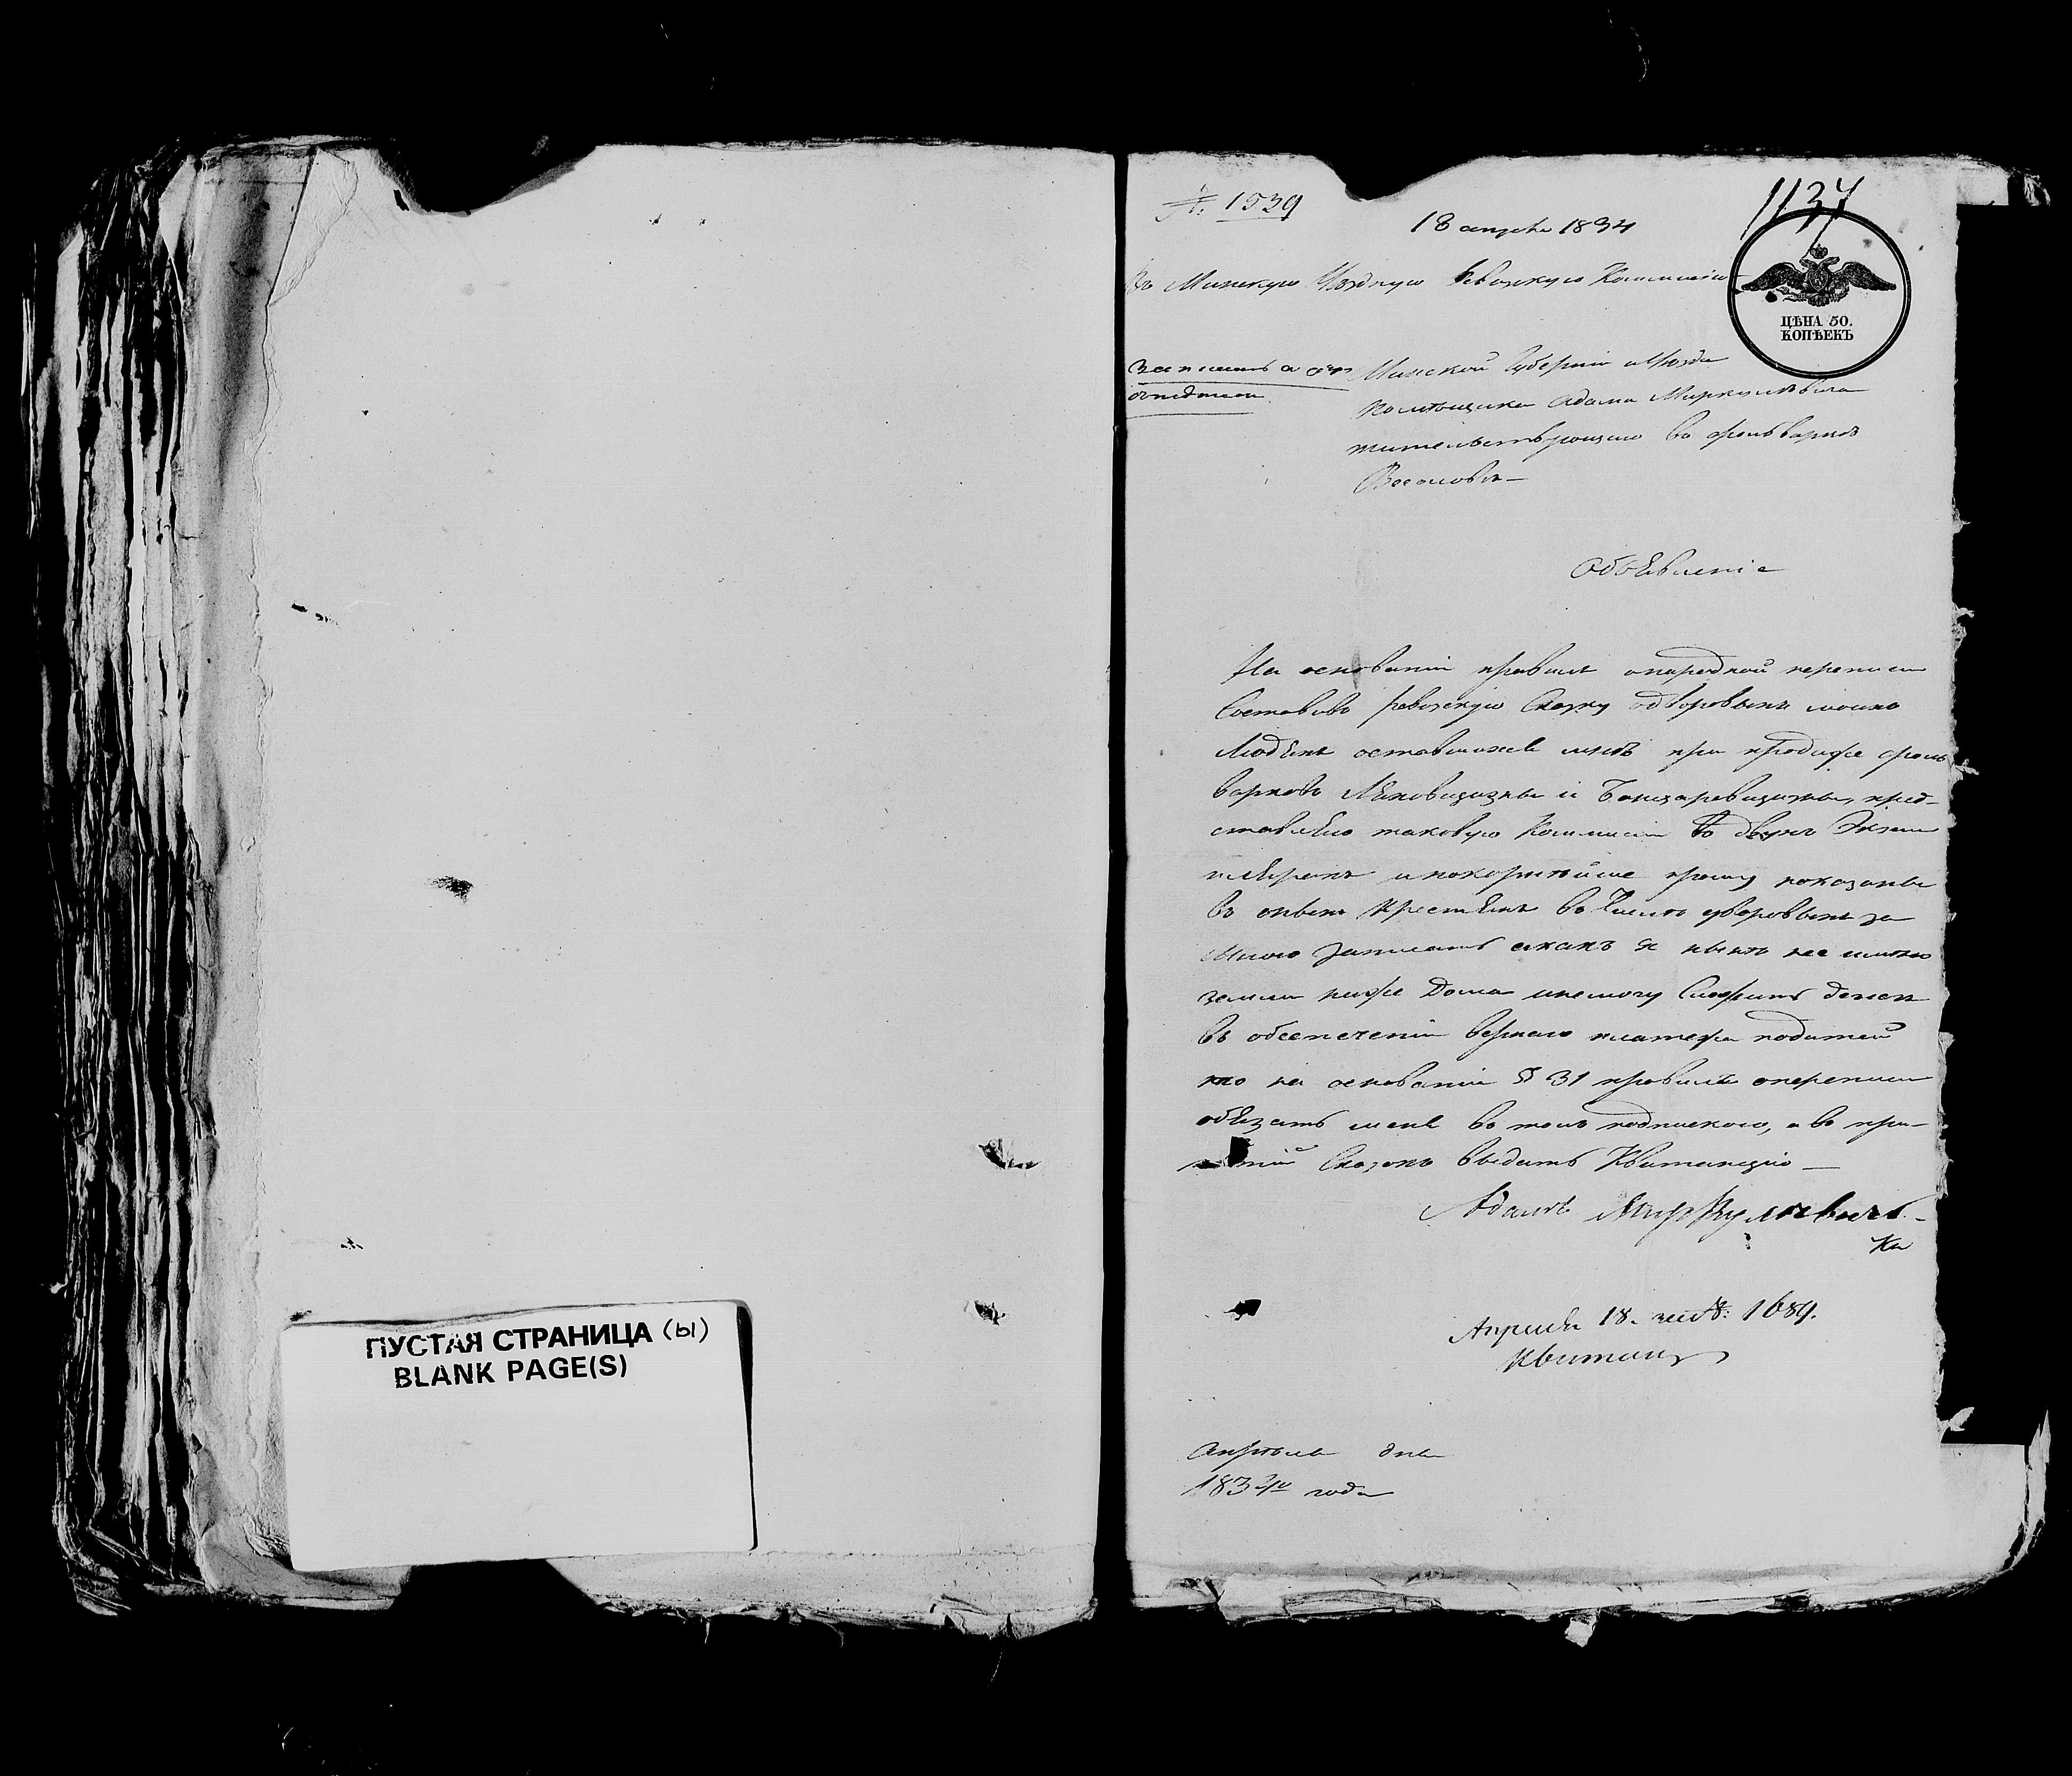 ПУСТАЯ СТРАНИЦА (ы)
BLANK PAGE(S)
№: 1539
18 апреля 1834
1137
ЦѢНА 50.
КОПѢЕКЪ
Въ Минскую Уѣздную Ревизкую Коммисію
Минской Губерніи и Уѣзда
помѣщика Адама Миркулѣвича
жительствующаго въ фольваркѣ
Объявленіе
На основаніи правилъ о народной переписи
Составивъ ревизскую Сказку о дворовыхъ моихъ
Людяхъ оставшихся мнѣ при продаже фоль
варковъ и пред-
ставляю таковую Коммисіи въ двухъ Экзем
плярахъ и покорнѣйше прошу показаны
въ оныхъ крестьянъ въ число дворовыхъ за
Мною Записать а какъ я не имѣю
земли ниже Дома и немогу Служить
въ обезпеченіи вернаго платежа податей
то на основаніи § 31 правилъ о переписи
обязать меня въ томъ подпискою, а въ при-
нятіи Сказокъ выдать Квитанцію
Адамъ Миркулѣвичъ
Апреля 18. 1689.
Апрѣля дня
1834го года